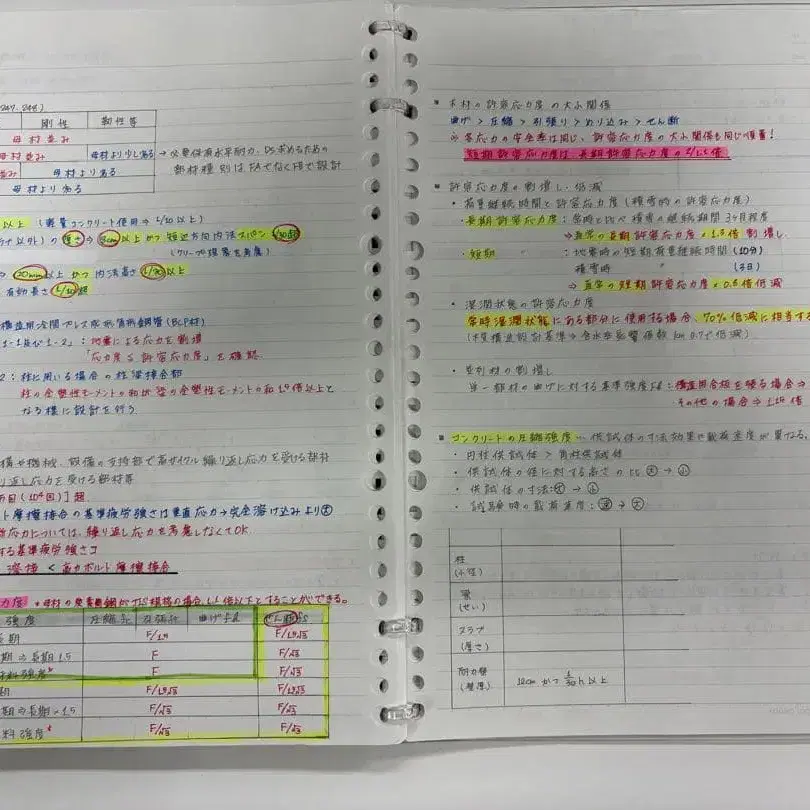 247, 248)
剛性 靭性等
母材並み
母材並み 母材より少し劣る
母材より劣る
母材より劣る
→ 必要保有水平耐力、Dsを求めるための
部材種別はFAでなくFBで設計
以上 (軽量コンクリート使用⇒ 1/10以上)
以外) の厚さ⇒8cm以上かつ短辺方向内法スパン1/30超
(クリープ現象を考慮)
⇒ 20mm以上かつ内法高さ1/30以上
有効長さ1/10超
構造用冷間プレス成形角形鋼管(BCP材)
1-1及び1-2」: 地震による応力を割増
「応力度≦許容応力度」を確認
2: 柱に用いる場合の柱梁接合部
柱の全塑性モーメントの和が梁の全塑性モーメントの和1.5倍以上と
なる様に設計を行う
機や機械、設備の支持部で高サイクル繰り返し応力を受ける部材
り返し応力を受ける部材等
万回(10⁴回)] 超
ト摩擦接合の基準疲労強さは垂直応力→完全溶け込みより大
応力については、繰り返し応力を考慮しなくてOK
する基準疲労強さコ
溶接 < 高力ボルト摩擦接合
力度 *母材の炭素鋼がJIS規格の場合、1.1倍以下とすることができる。
強度 圧縮fc 引張ft 曲げfb せん断fs
長期 F/1.5 F/1.5√3
期⇒長期×1.5 F F/√3
材料強度* F F/√3
期 F/1.5√3 F/1.5√3
期⇒長期×1.5 F/√3 F/√3
料強度* F/√3 F/√3
▪ 木材の許容応力度の大小関係
曲げ > 圧縮 > 引張り > めり込み > せん断
※ 各応力の安全率は同じ、許容応力度の大小関係も同じ順番!
短期許容応力度は、長期許容応力度の2/1.1倍
▪ 許容応力度の割増し・低減
・荷重継続時間と許容応力度 (積雪時の許容応力度)
・長期許容応力度: 常時と比べ積雪の継続期間3ヶ月程度
⇒通常の長期許容応力度×1.3倍割増し
・短期 〃 : 地震時の短期荷重継続時間 (10分)
積雪時 〃 (3日)
⇒通常の短期許容応力度×0.8倍低減
・湿潤状態の許容応力度
常時湿潤状態にある部分に使用する場合、70%低減に相当する
(木質構造設計基準⇒含水率影響係数km 0.7で低減)
・並列材の割増し
単一部材の曲げに対する基準強度Fb: 構造用合板を張る場合⇒
その他の場合⇒1.15倍
▪ コンクリートの圧縮強度 … 供試体の寸法効果や載荷速度が異なる。
・円柱供試体 > 角柱供試体
・供試体の径に対する高さの比: 大 → 小
・供試体の寸法: 大 → 小
・試験時の載荷速度: 速 → 大
柱
(小径)
梁
(せい)
スラブ
(厚さ)
耐力壁
(壁厚) 12cmかつ1/30h以上